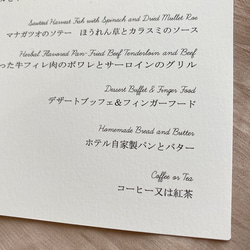 Sautéed Harvest Fish with Spinach and Dried Mullet Roe
マナガツオのソテー ほうれん草とカラスミのソース
Herbal Flavored Pan-Fried Beef Tenderloin and Beef
った牛フィレ肉のポワレとサーロインのグリル
Dessert Buffet & Finger Food
デザートブッフェ&フィンガーフード
Homemade Bread and Butter
ホテル自家製パンとバター
Coffee or Tea
コーヒー又は紅茶